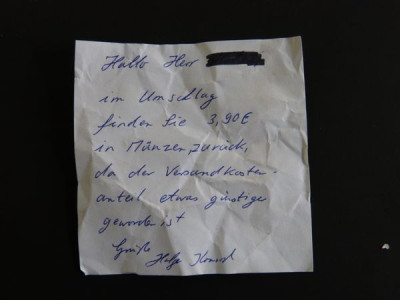 Hallo Herr
im Umschlag
finden Sie 3,90€
in Münzen zurück,
da der Versandkosten-
anteil etwas günstiger
geworden ist
Grüße